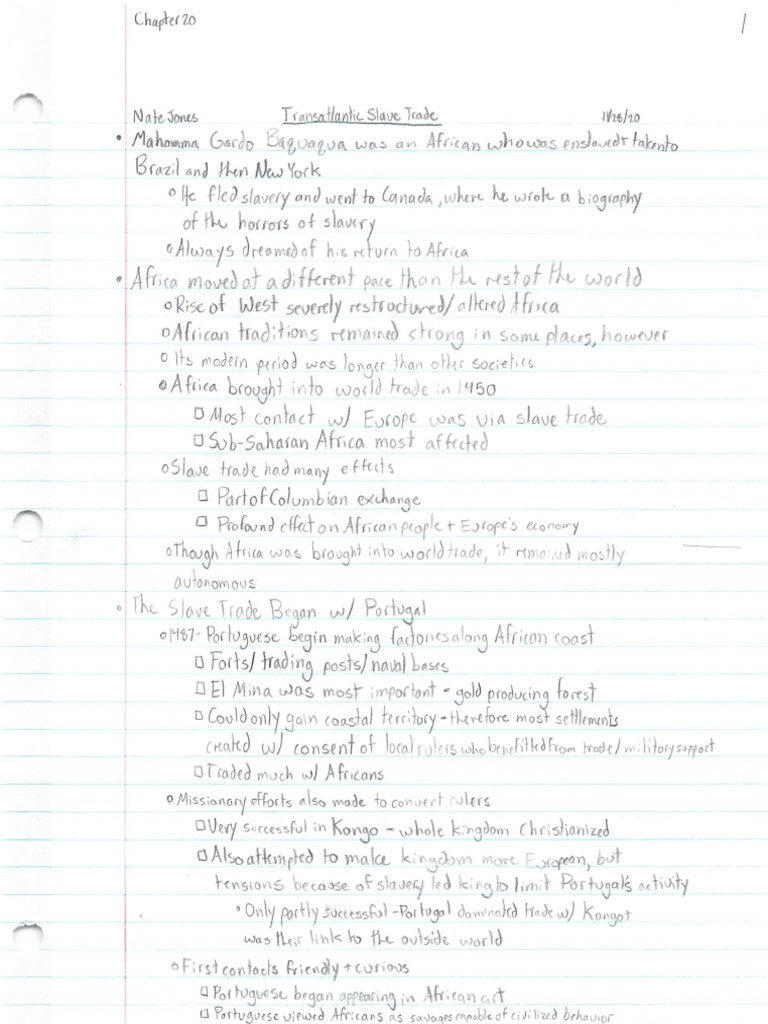 Chapter 20
1
Nate Jones Transatlantic Slave Trade 11/28/20
• Mahomma Gardo Baquaqua was an African who was enslaved + taken to
Brazil and then New York
o He fled slavery and went to Canada, where he wrote a biography
of the horrors of slavery
o Always dreamed of his return to Africa
• Africa moved at a different pace than the rest of the world
o Rise of West severely restructured/altered Africa
o African traditions remained strong in some places, however
o Its modern period was longer than other societies
o Africa brought into world trade in 1450
□ Most contact w/ Europe was via slave trade
□ Sub-Saharan Africa most affected
o Slave trade had many effects
□ Part of Columbian exchange
□ Profound effect on African people + Europe's economy
o Though Africa was brought into world trade, it remained mostly
autonomous
• The Slave Trade Began w/ Portugal
o 1487 - Portuguese begin making factories along African coast
□ Forts/trading posts/naval bases
□ El Mina was most important - gold producing forest
□ Could only gain coastal territory - therefore most settlements
created w/ consent of local rulers who benefitted from trade/military support
□ Traded much w/ Africans
o Missionary efforts also made to convert rulers
□ Very successful in Kongo - whole kingdom Christianized
□ Also attempted to make kingdom more European, but
tensions because of slavery led king to limit Portugal's activity
• Only partly successful - Portugal dominated trade w/ Kongo +
was their link to the outside world
o First contacts friendly + curious
□ Portuguese began appearing in African art
□ Portuguese viewed Africans as savages capable of civilized behavior